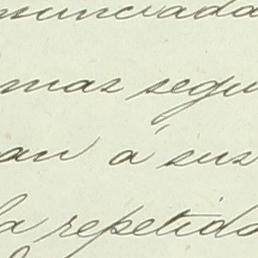 nunciada
mas segu
an á sus
la repetida